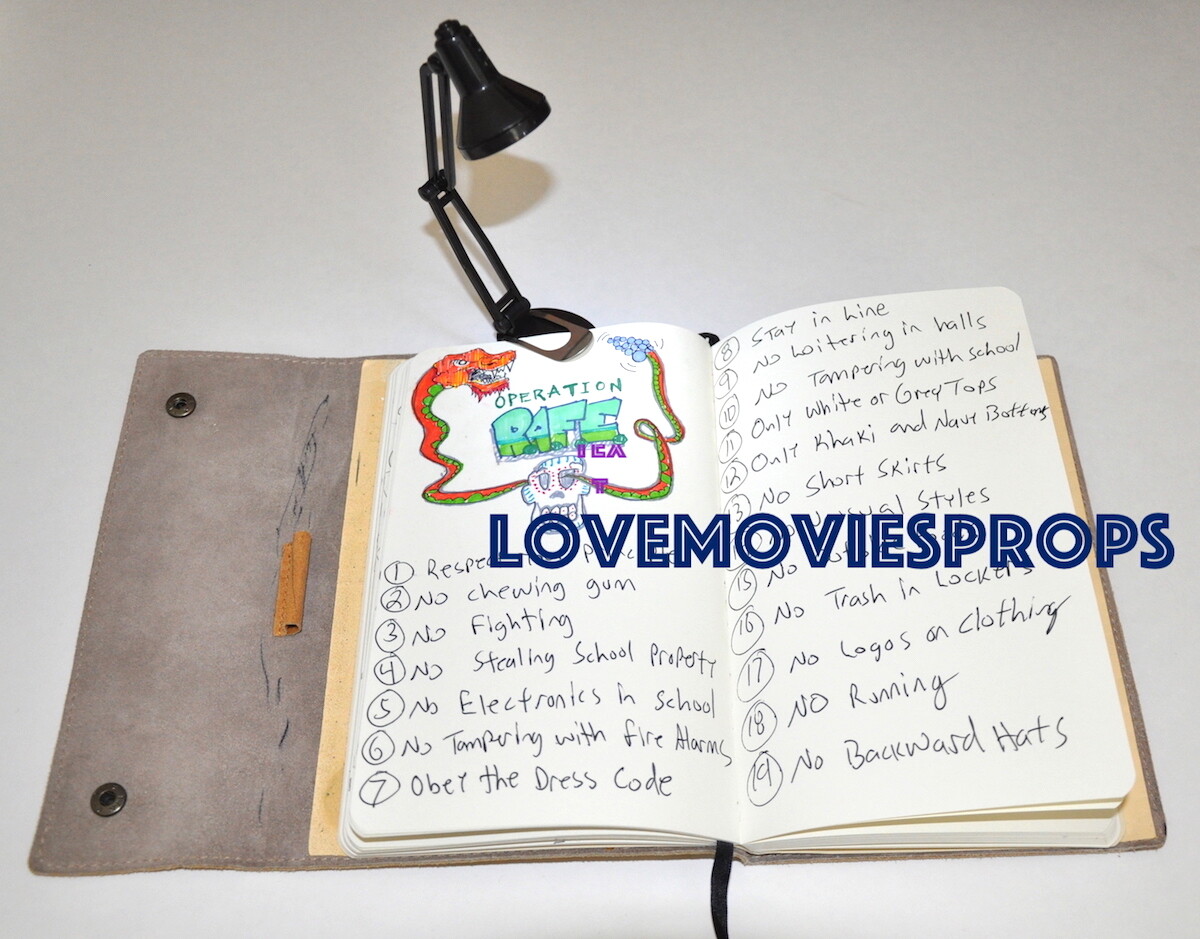 OPERATION
RAFE
ICA
T
LOVEMOVIESPROPS
1 Respect
2 No chewing gum
3 No Fighting
4 No Stealing School Property
5 No Electronics in School
6 No Tampering with Fire Alarms
7 Obey the Dress Code
8 Stay in Line
9 No Loitering in halls
10 No Tampering with School
11 Only White or Grey Tops
12 Only Khaki and Navy Bottoms
13 No Short Skirts
Styles
15 No
16 No Trash in Lockers
17 No Logos on Clothing
18 NO Running
19 No Backward Hats